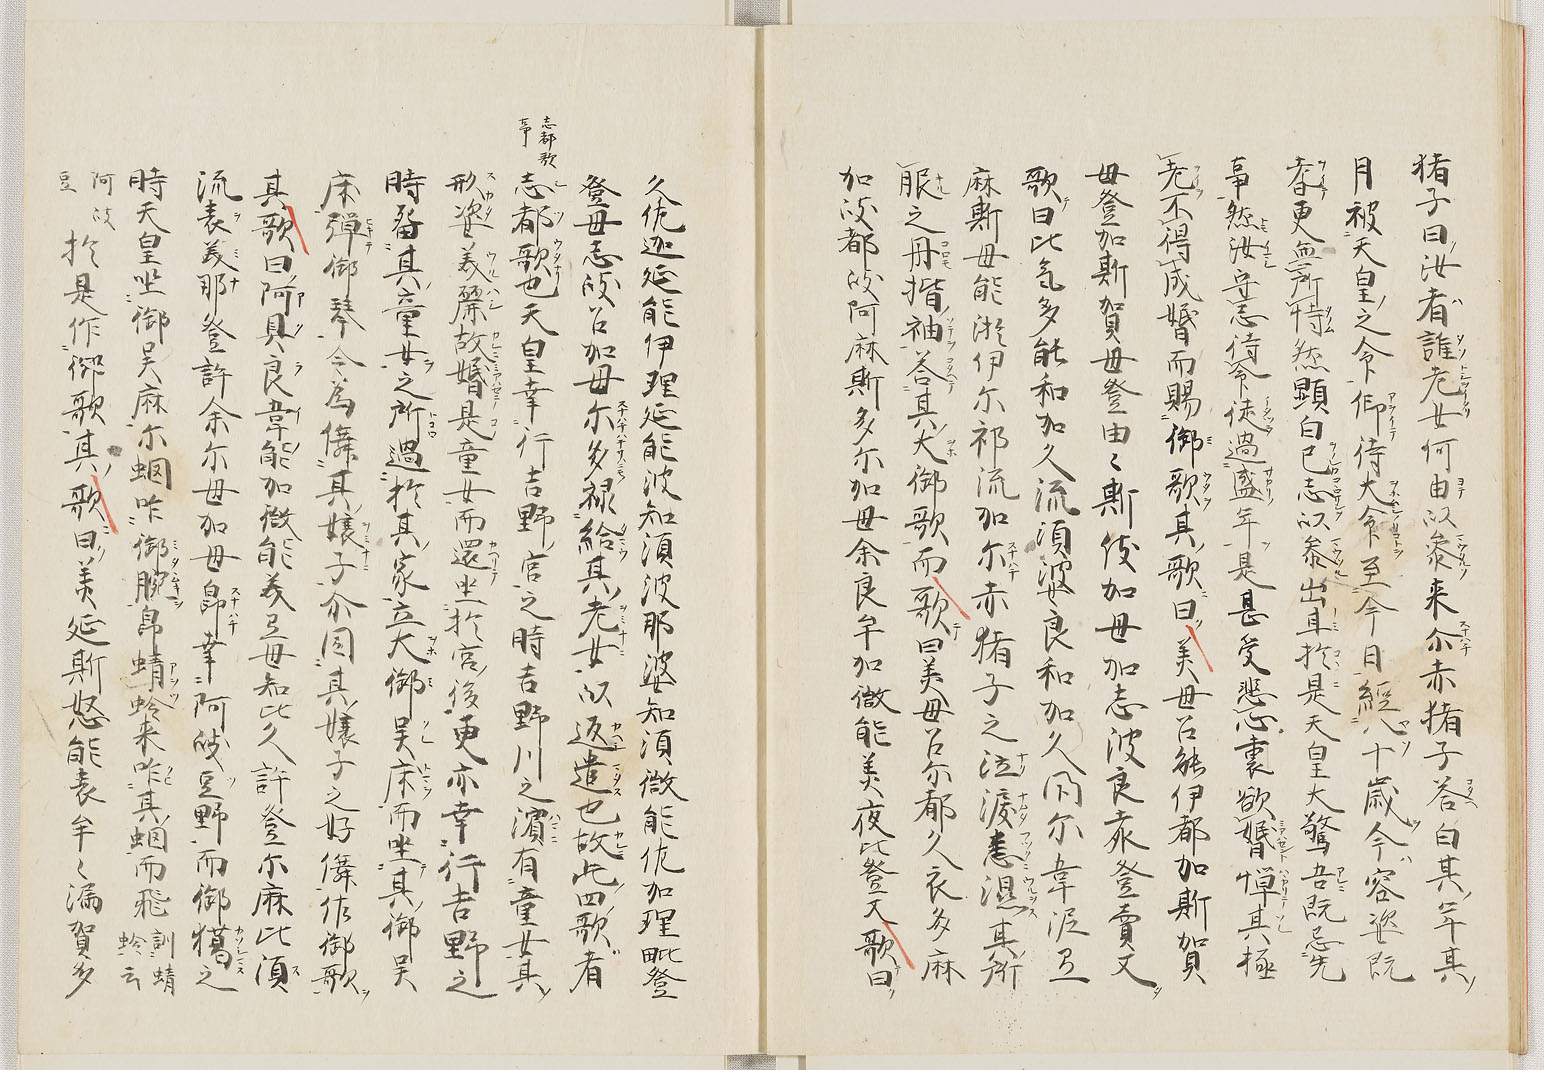 猪子曰汝者誰老女何由以参来尒赤猪子答白其年其
月被天皇之令仰待大令至今日經八十歳今容姿既
耆更無所恃然顕白己志以参出耳於是天皇大驚吾既忘先
事然汝守志待令徒過盛年是甚受悲心裏欲婚憚其極
老不得成婚而賜御歌其歌曰美母呂能伊都加斯賀
母登加斯賀母登由〻斯伎加母加志波良袁登賣又
歌曰比氣多能和加久流須婆良和加久閇尒韋泥弖
麻斯母能淤伊尒祁流加尒赤猪子之泣涙悉湿其所
服之丹揩袖答其大御歌而歌曰美母呂尒都久衣多麻
加岐都岐阿麻斯多尒加母余良牟加微能美夜比登又歌曰
久佐迦延能伊理延能波知須波那婆知須微能佐加理毗登
登母志岐呂加母尒多禄給其老女以返遣也故此四歌者
志都歌事
志都歌也天皇幸行吉野宮之時吉野川之濱有童女其
形姿美麗故婚是童女而還坐於宮後更亦幸行吉野之
時留其童女之所遇於其家立大御呉床而坐其御呉
床弾御琴令為儛其嬢子尒因其嬢子之好儛作御歌
其歌曰阿具良韋能加微能美弖母知比久許登尒麻比須
流袁美那登許余尒母加母即幸阿岐豆野而御獦之
時天皇坐御呉麻尒蝈咋御腕即蜻蛉来咋其蝈而飛訓蜻蛉云
阿岐豆於是作御歌其歌曰美延斯怒能袁牟〻漏賀多